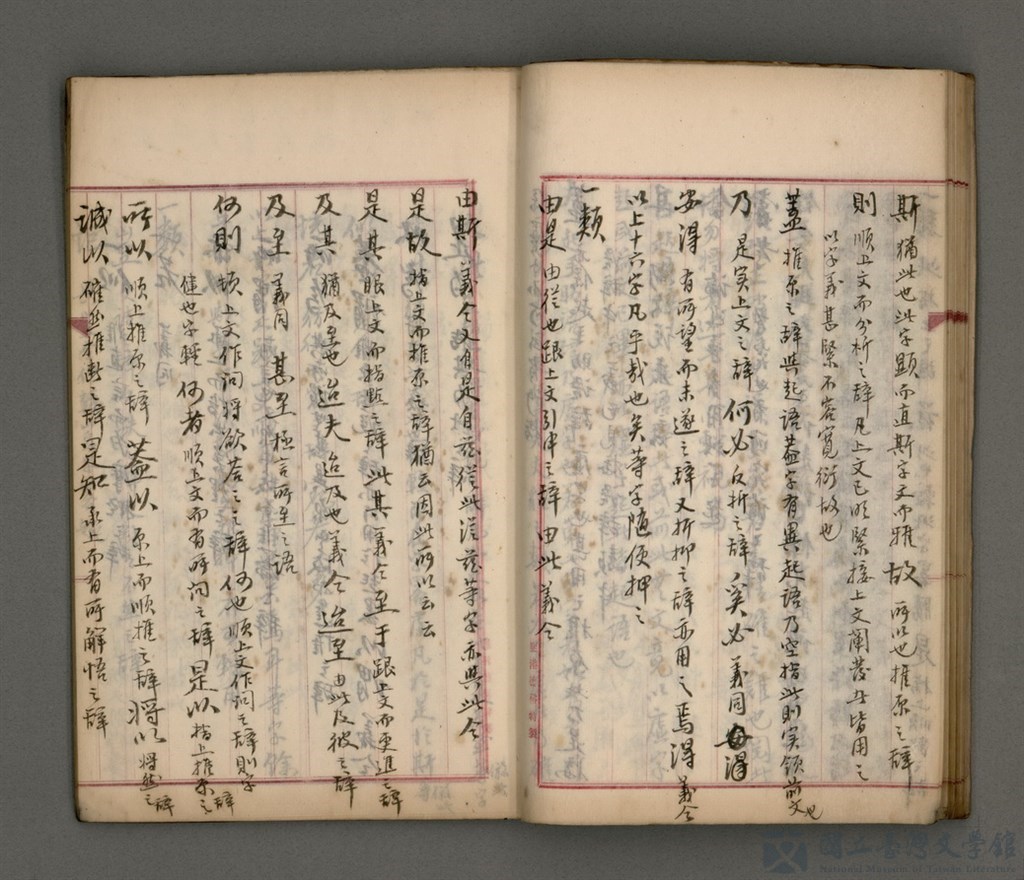 斯 猶此也此字顯而直斯字文而雅 故 所以也推原之辞
則 順上文而分析之辞凡上文已明緊接上文闡發者皆用之
以字義甚緊不容寬衍故也
蓋 推原之辞與起語蓋字有異起語乃空指此則实領前文也
乃 是实上文之辞 何必 反折之辞 奚必 義同 毋得
安得 有所望而未遂之辞又折抑之辞亦用之 焉得 義仝
以上十六字凡乎哉也矣等字隨便押之
一類
由是 由從也跟上文引伸之辞 由此 義仝
由斯 義仝又自是自茲從此從茲等字亦與此仝
是故 指上文而推原之辞猶云因此所以云云
是其 眼上文而指點之辞 此其 義仝 至于 跟上文而更進之辞
及其 猶及至也 迨夫 迨及也義仝 迨至 由此及彼之辞
及至 義同 甚至 極言所至之語
何則 頓上文作问將欲荅之之辞 何也 順上文作问之辞則字
健也字輕 何者 順上文而有所问之辞 是以 指上推原之辞
所以 順上推原之辞 蓋以 原上而順推之辞 將以 將然之辞
誠以 確然推斷之辞 是知 承上而有所解悟之辞
國立臺灣文學館
National Museum of Taiwan Literature